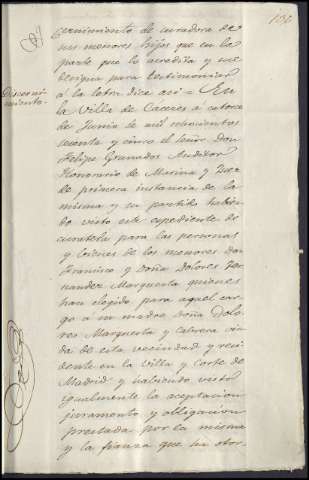 136
cernimiento de curadora de
sus menores hijos que en la
parte que lo acredita y se
designa para testimoniar
Discerni-
miento.
á la letra dice asi = En
la Villa de Cáceres á catorce
de Junio de mil ochocientos
sesenta y cinco el señor Don
Felipe Granados Auditor
Honorario de Marina y Juez
de primera instancia de la
misma y su partido habien-
do visto este espediente de
curatela para las personas
y bienes de los menores Don
Francisco y Doña Dolores Fer-
nandez Marquerta quienes
han elegido para aquel car-
go á su madre Doña Dolo-
res Marquerta y Cabrera viu-
da de esta vecindad y resi-
dente en la Villa y Corte de
Madrid y habiendo visto
igualmente la aceptacion
juramento y obligacion
prestada por la misma
y la fianza que ha otor-